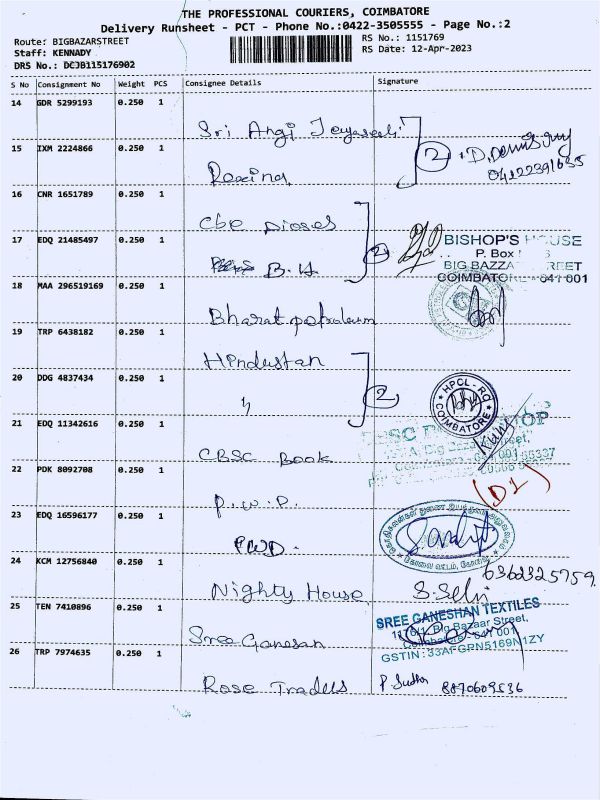 THE PROFESSIONAL COURIERS, COIMBATORE
Delivery Runsheet - PCT - Phone No.:0422-3505555 - Page No.:2
Route: BIGBAZARSTREET
RS No.: 1151769
Staff: KENNADY
RS Date: 12-Apr-2023
DRS No.: DCJB115176902
S No Consignment No Weight PCS Consignee Details Signature
14 GDR 5299193 0.250 1
Sri Angi
15 IXM 2224866 0.250 1
2
16 CNR 1651789 0.250 1
Cbe Dioses
17 EDQ 21485497 0.250 1
2
BISHOP'S HOUSE
P. Box
BIG BAZZA REET
COIMBATORE 641 001
B.H
18 MAA 296519169 0.250 1
Bharat petroleum
19 TRP 6438182 0.250 1
Hindustan
20 DDG 4837434 0.250 1
〃
2
HPCL-RO
COIMBATORE
21 EDQ 11342616 0.250 1
CBSC Book
22 PDK 8092708 0.250 1
P.W.D
(D1)
23 EDQ 16596177 0.250 1
PWD.
24 KCM 12756840 0.250 1
Nighty House S. Selvi
6362325759
25 TEN 7410896 0.250 1
Sree Ganesan
SREE GANESHAN TEXTILES
Big Bazaar Street,
Coimbatore - 641 001
GSTIN : 33AFGPN5169N1ZY
26 TRP 7974635 0.250 1
Rose Traders P. Sudha 8870609536